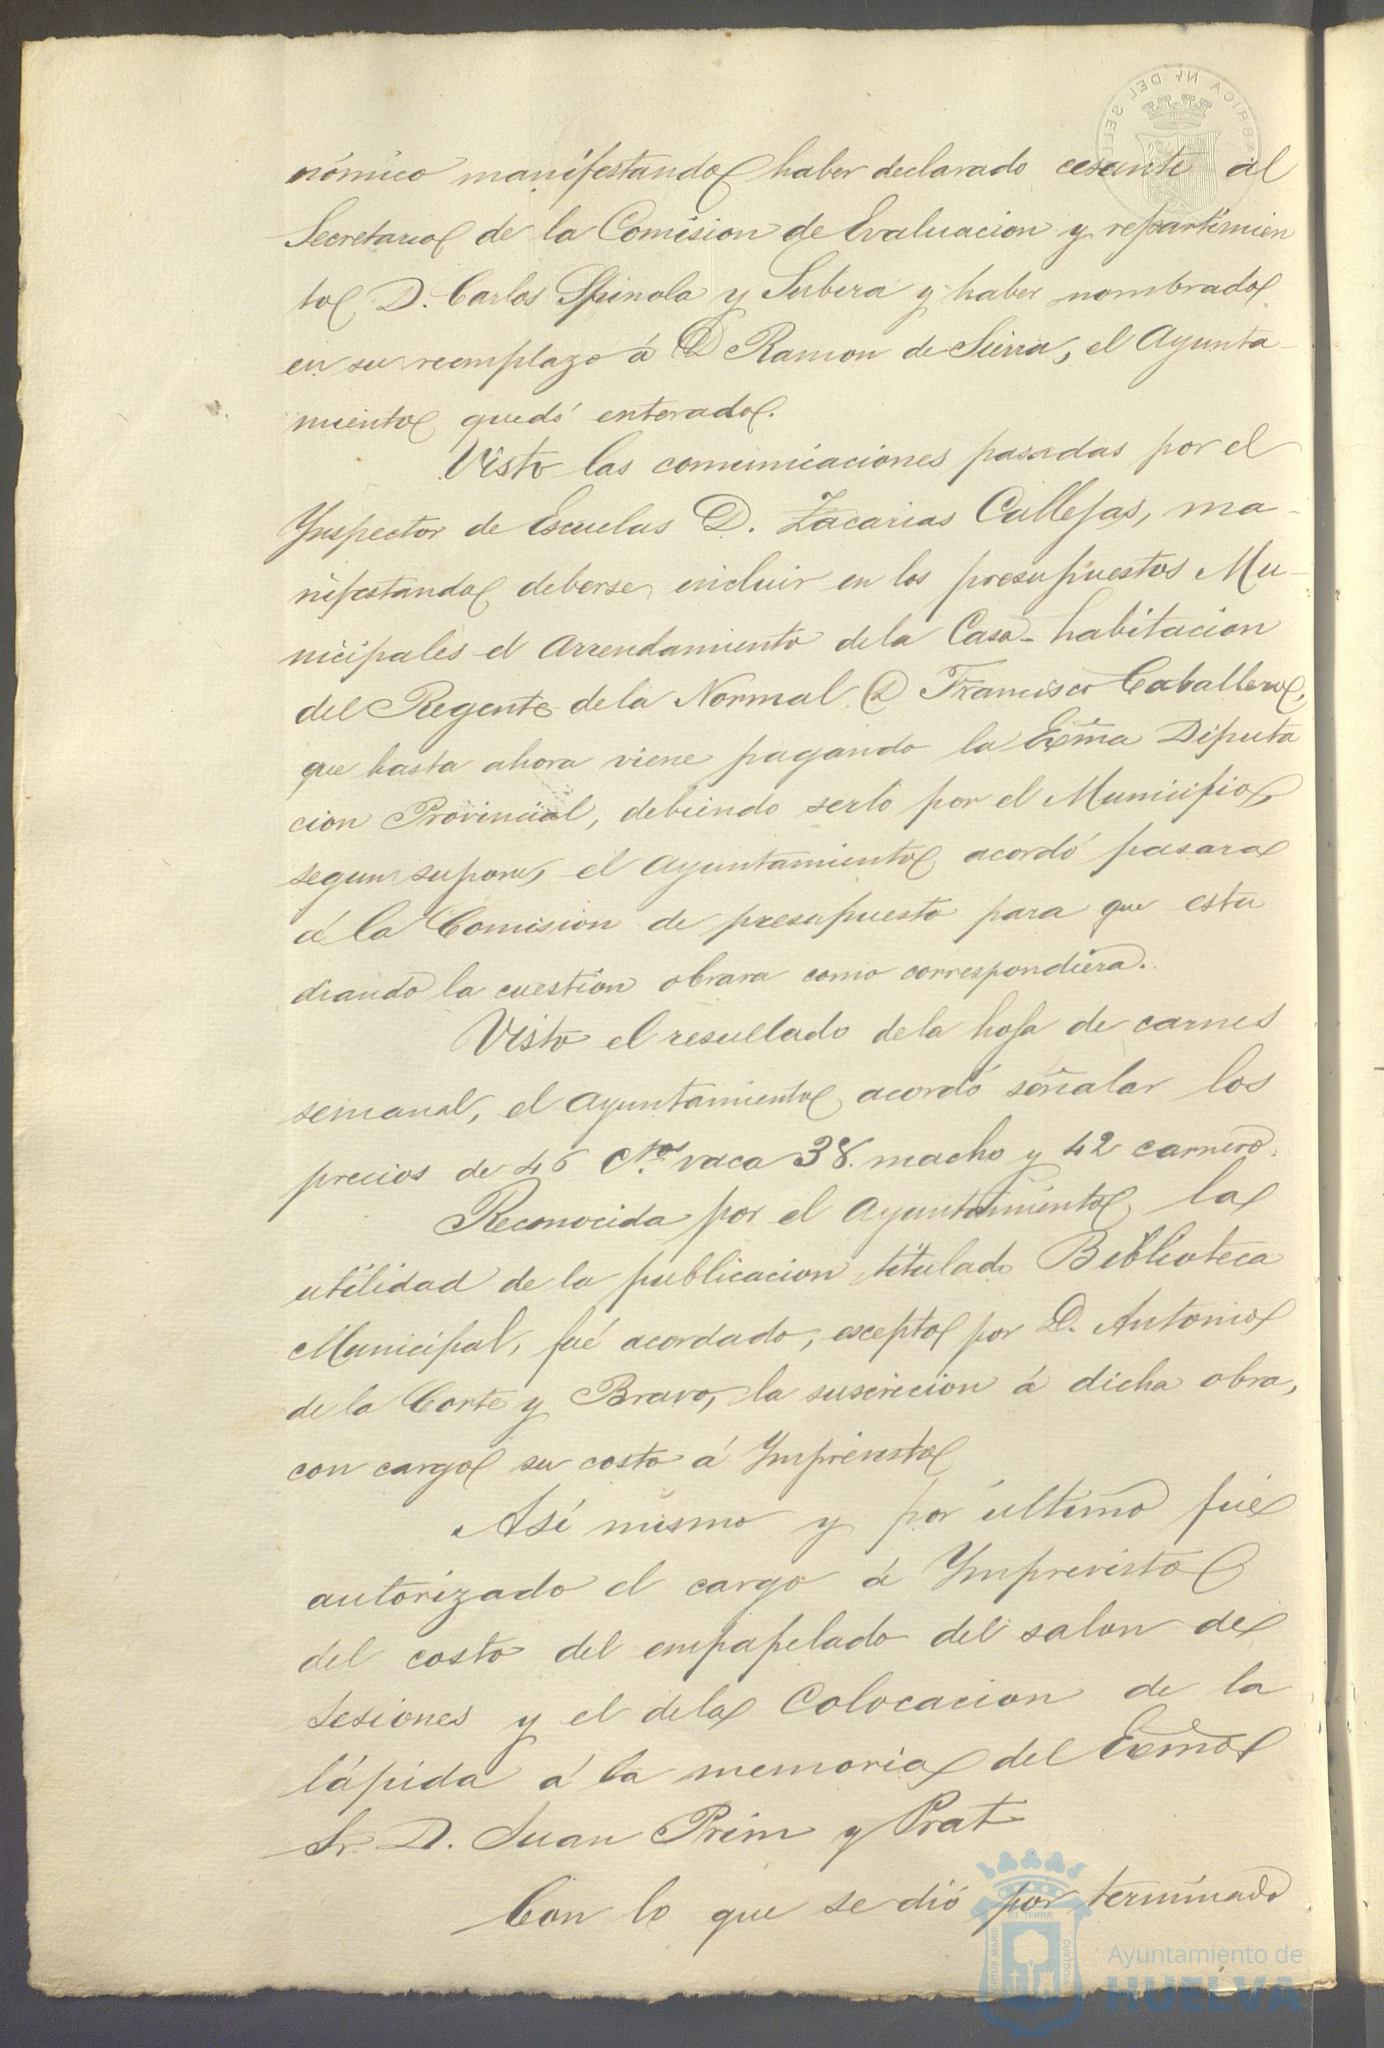 nómico manifestando haber declarado cesante al
Secretario de la Comision de Evaluacion y repartimien
to D. Carlos Spinola y Subera y haber nombrado
en su reemplazo á D Ramon de Sierra, el Ayunta-
miento quedó enterado.
Visto las comunicaciones pasadas por el
Ynspector de Escuelas D. Zacarias Callejas, ma-
nifestando deberse incluir en los presupuestos Mu-
nicipales el arrendamiento de la Casa-habitacion
del Regente de la Normal D Francisco Caballero,
que hasta ahora viene pagando la Exma Diputa
cion Provincial, debiendo serlo por el Municipio
segun supone, el Ayuntamiento acordó pasara
á la Comision de presupuesto para que estu
diando la cuestion obrara como correspondiera.
Visto el resultado de la hoja de carnes
semanal, el Ayuntamiento acordó señalar los
precios de 46 Ctos vaca 38. macho y 42 carnero.
Reconocida por el Ayuntamiento la
utilidad de la publicacion titulado Biblioteca
Municipal, fué acordado, escepto por D. Antonio
de la Corte y Bravo, la suscricion á dicha obra,
con cargo su costo á Ymprevisto
Asi mismo y por último fué
autorizado el cargo á Ymprevisto
del costo del empapelado del salon de
sesiones y el de la Colocacion de la
lápida á la memoria del Exmo
Sr. D. Juan Prim y Prat
Con lo que se dió por terminado
Ayuntamiento de
HUELVA